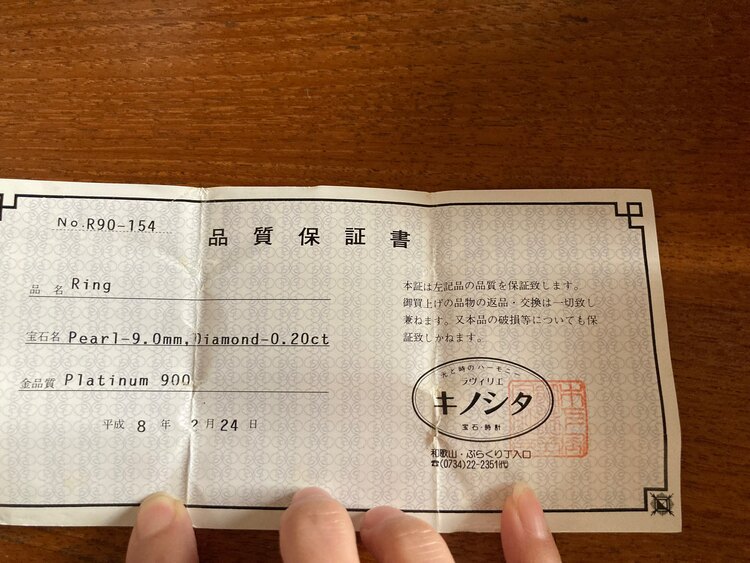 No.R90-154
品質保証書
品名 Ring
宝石名 Pearl-9.0mm,Diamond-0.20ct
金品質 Platinum 900
平成 8 年 2 月 24 日
本証は左記品の品質を保証致します。
御買上げの品物の返品・交換は一切致し
兼ねます。又本品の破損等についても保
証致しかねます。
光と時のハーモニー
ラヴィリエ
キノシタ
宝石・時計
和歌山・ぶらくり丁入口
☎(0734)22-2351代